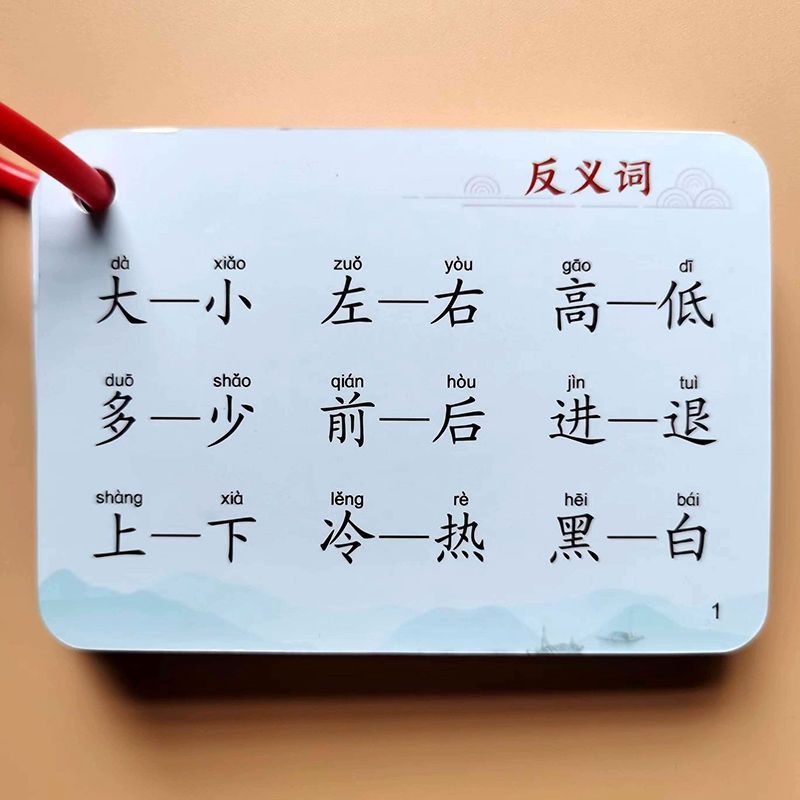 反义词
dà xiǎo zuǒ yòu gāo dī
大—小 左—右 高—低
duō shǎo qián hòu jìn tuì
多—少 前—后 进—退
shàng xià lěng rè hēi bái
上—下 冷—热 黑—白
1